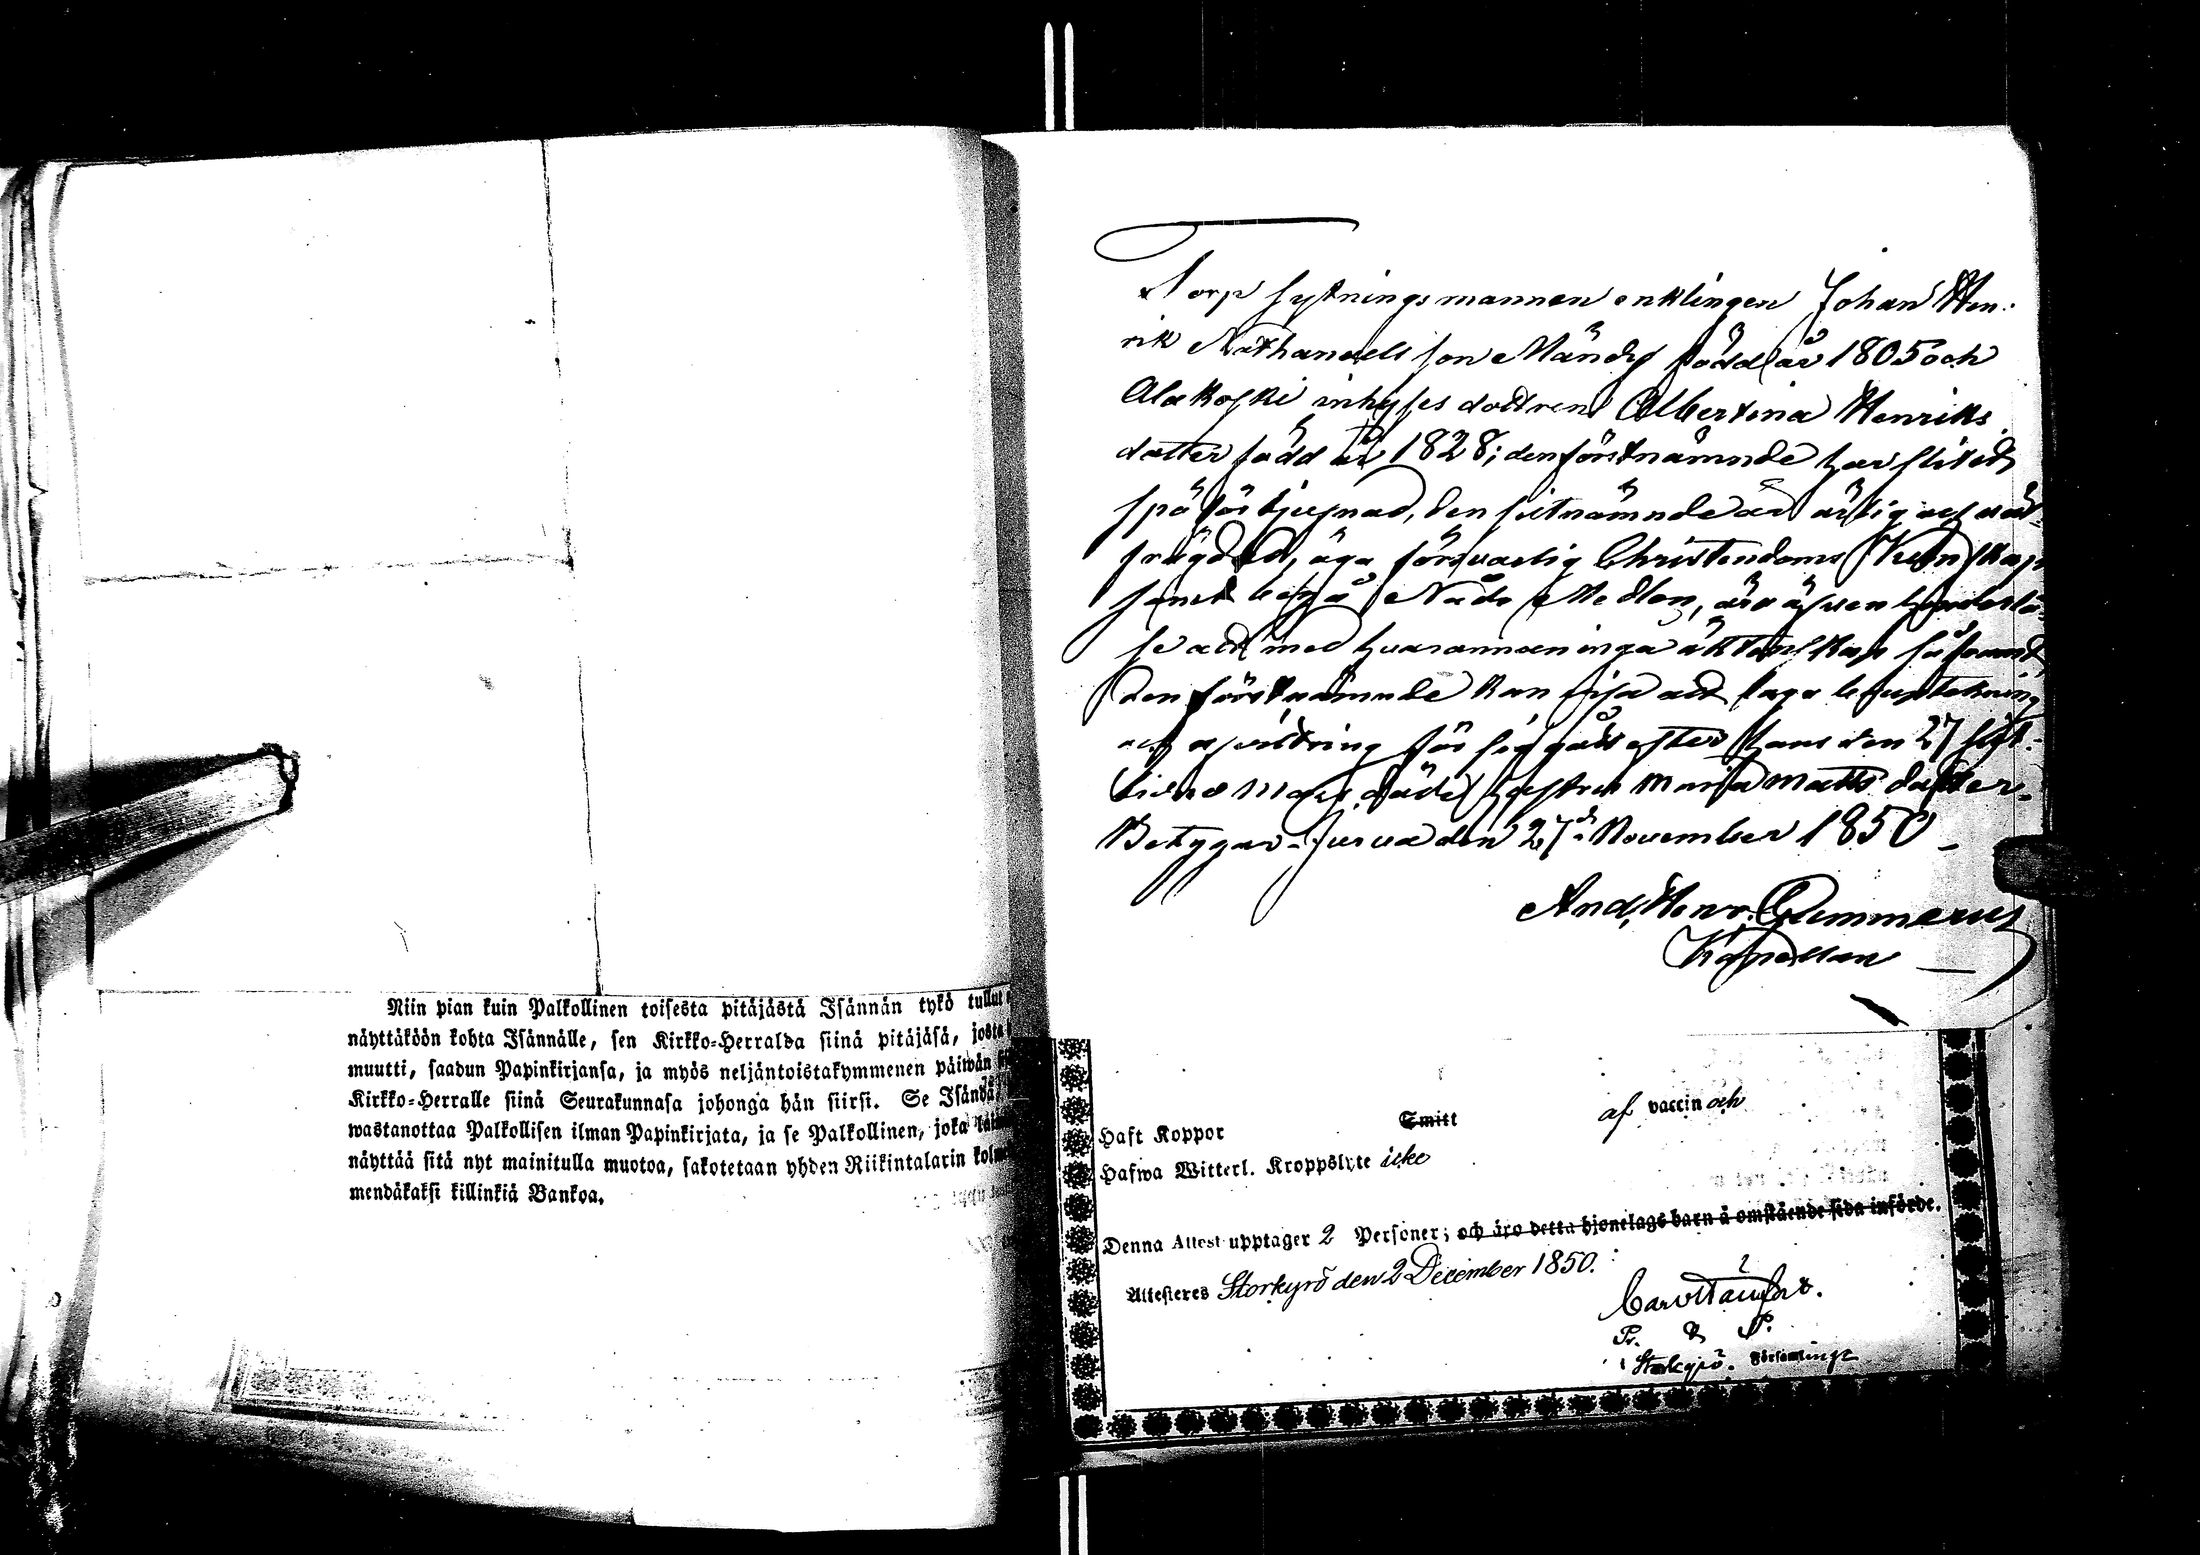 Niin pian kuin Palkollinen toisesta pitäjästä Isännän tykö tullut
näyttäköön kohta Isännälle, sen Kirkko-Herralda siinä pitäjäsä, josta
muutti, saadun Papinkirjansa, ja myös neljäntoistakymmenen päiwän
Kirkko-Herralle siinä Seurakunnasa johonga hän siirsi. Se Isändä,
wastanottaa Palkollisen ilman Papinkirjata, ja se Palkollinen, joka
näyttää sitä nyt mainitulla muotoa, sakotetaan yhden Riikintalarin
mendäkaksi killinkiä Bankoa.
Torp sytningsmannen enklingen Johan Hen:
rik Nathanaels son Mändy född år 1805 och
Alakoski inhyses dottren Albertina Henriks
dotter född år 1828; den förstnämnde har
den sistnämnde är ärlig och
äga försvarlig Christendoms Kunskap
samt begå Nåde Medlen, äro äfven hinderlö-
se att med hvarannan ingå äktenskap såframt
den förstnämnde kan visa att laga bouptekning
och afvittring för sig gått efter hans den 27 sist-
lidne Mars döde hustru Maria Matts dotter.
Betygar. Jurva den 27de November 1850
And. Henr. Gummerus
Kapellan
Haft Koppor Smitt af vaccin och
Hafwa Witterl. Kroppslyte icke
Denna Attest upptager 2 Personer; och äro detta hjonelags barn å omstående sida införde.
Attesteres Storkyrö den 2 December 1850.
Pr. & P.
i Storkyrö Församlinge